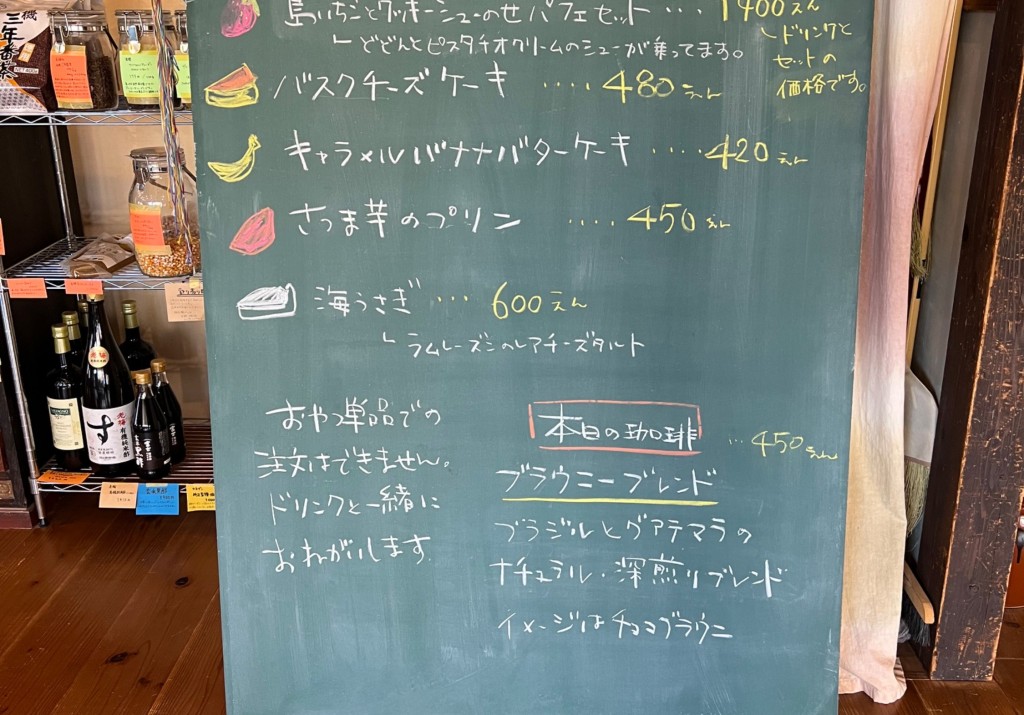 島いちごとクッキーシューのせパフェセット ... 1400えん
└ どどんとピスタチオクリームのシューが乗ってます。
└ドリンクと
セットの
価格です。
バスクチーズケーキ .... 480えん
キャラメルバナナバターケーキ .... 420えん
さつま芋のプリン .... 450えん
海うさぎ ... 600えん
└ ラムレーズンのレアチーズタルト
おやつ単品での
注文はできません。
ドリンクと一緒に
おねがいします。
本日の珈琲 ... 450えん
ブラウニーブレンド
ブラジルとグアテマラの
ナチュラル・深煎りブレンド
イメージはチョコブラウニー
三年番茶
老梅
有機純米酢
す